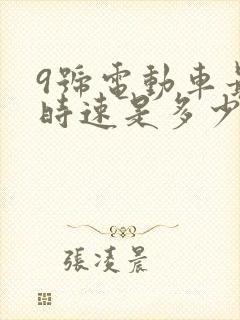 9號電動車
時速是多少
張凌晨